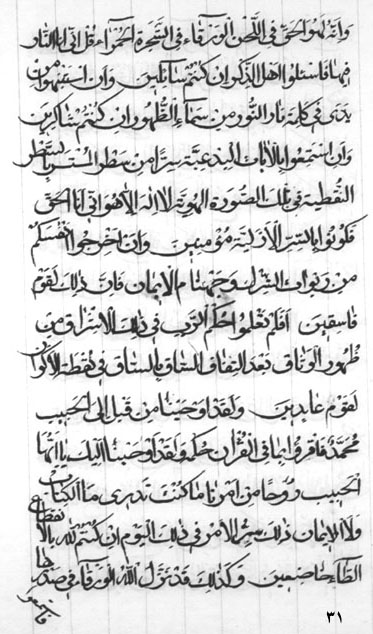 وانه لهو الحق في اللحن الورقاء في الشجرة الحمرآء قل اني انا النار
فيها فاسئلوا اهل الذكر ان كنتم سآئلين وان استفهموا من
يدي في كلمة نار النور من سمآء الظهور ان كنتم
وان استمعوا بالايات البديعية سرا من سطر المستسر
النقطية في تلك الصورة الهوية لا اله الا هو اني انا الحق
فكونوا بالسر الازلية مؤمنين وان اخرجوا انفسكم
من الشرك وجهنام الايمان فان ذلك لقوم
فاسقين افلم تعلموا حكم الرب في ذلك الاشراق من
ظهور الوثاق بعد التفاف الساق بالساق في نقطة الاكوان
لقوم عابدين ولقد اوحينا من قبل الى الحبيب
محمد فاقرؤا في القرآن حكمه ولقد اوحينا اليك يا ايها
الحبيب روحا من امرنا ما كنت تدري ما الكتاب
ولا الايمان ذلك سر الامر في ذلك اليوم ان كنتم لله بالانقطاع
خاضعين وكذلك قد نزل الله الورقاء في صدر
٣١